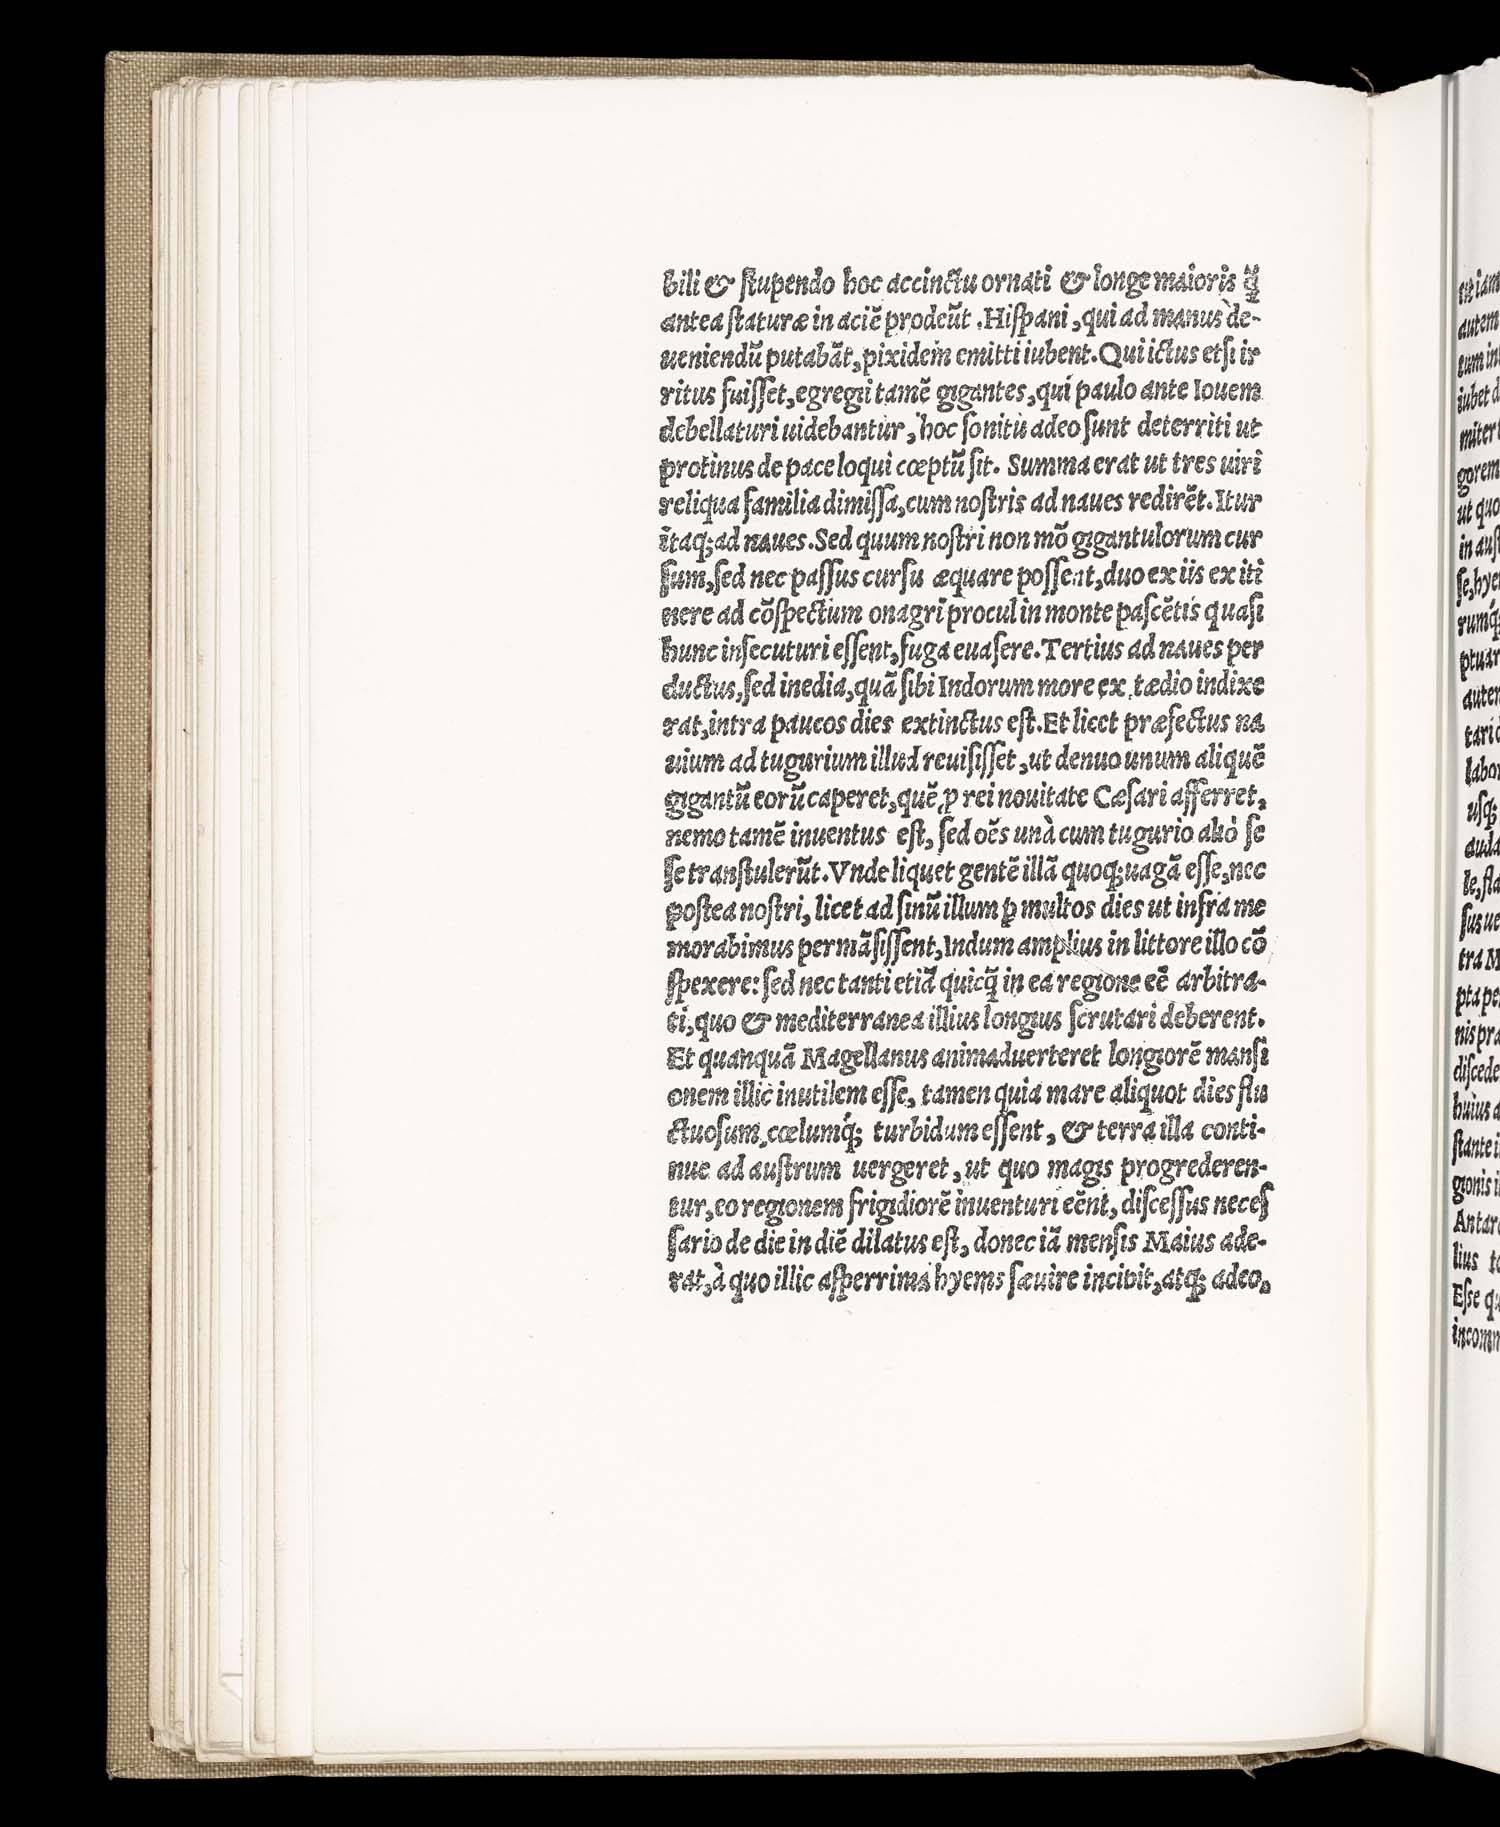 bili & ſtupendo hoc accinctu ornati & longe maioris q̃
antea ſtaturæ in aciẽ prodeũt. Hiſpani, qui ad manus de-
ueniendũ putabãt, pixidem emitti iubent. Qui ictus etſi ir
ritus fuiſſet, egregii tamẽ gigantes, qui paulo ante Iouem
debellaturi uidebantur, hoc ſonitu adeo ſunt deterriti ut
protinus de pace loqui cœptũ ſit. Summa erat ut tres uiri
reliqua familia dimiſſa, cum noſtris ad naues redirẽt. Itur
itaq; ad naues. Sed quum noſtri non mõ gigantulorum cur
ſum, ſed nec paſſus curſu æquare poſſent, duo ex iis ex iti
nere ad cõſpectum onagri procul in monte paſcẽtis quaſi
hunc inſecuturi eſſent, fuga euaſere. Tertius ad naues per
ductus, ſed inedia, quã ſibi Indorum more ex tædio indixe
rat, intra paucos dies extinctus eſt. Et licet præfectus na
uium ad tugurium illud reuiſiſſet, ut denuo unum aliquẽ
gigantũ eorũ caperet, quẽ ꝓ rei nouitate Cæſari afferret,
nemo tamẽ inuentus eſt, ſed oẽs unà cum tugurio aliò ſe
ſe tranſtulerũt. Vnde liquet gentẽ illã quoq; uagã eſſe, nec
poſtea noſtri, licet ad ſinũ illum ꝑ multos dies ut infra me
morabimus permãſiſſent, Indum amplius in littore illo cõ
ſpexere: ſed nec tanti etiã quicq̃ in ea regione eẽ arbitra-
ti, quo & mediterranea illius longius ſcrutari deberent.
Et quanquã Magellanus animaduerteret longiorẽ manſi
onem illic inutilem eſſe, tamen quia mare aliquot dies flu
ctuoſum, cœlumq́; turbidum eſſent, & terra illa conti-
nue ad auſtrum uergeret, ut quo magis progrederen-
tur, eo regionem frigidiorẽ inuenturi eẽnt, diſceſſus neceſ
ſario de die in diẽ dilatus eſt, donec iã menſis Maius ade-
rat, à quo illic aſperrima hyems ſæuire incipit, atq; adeo,